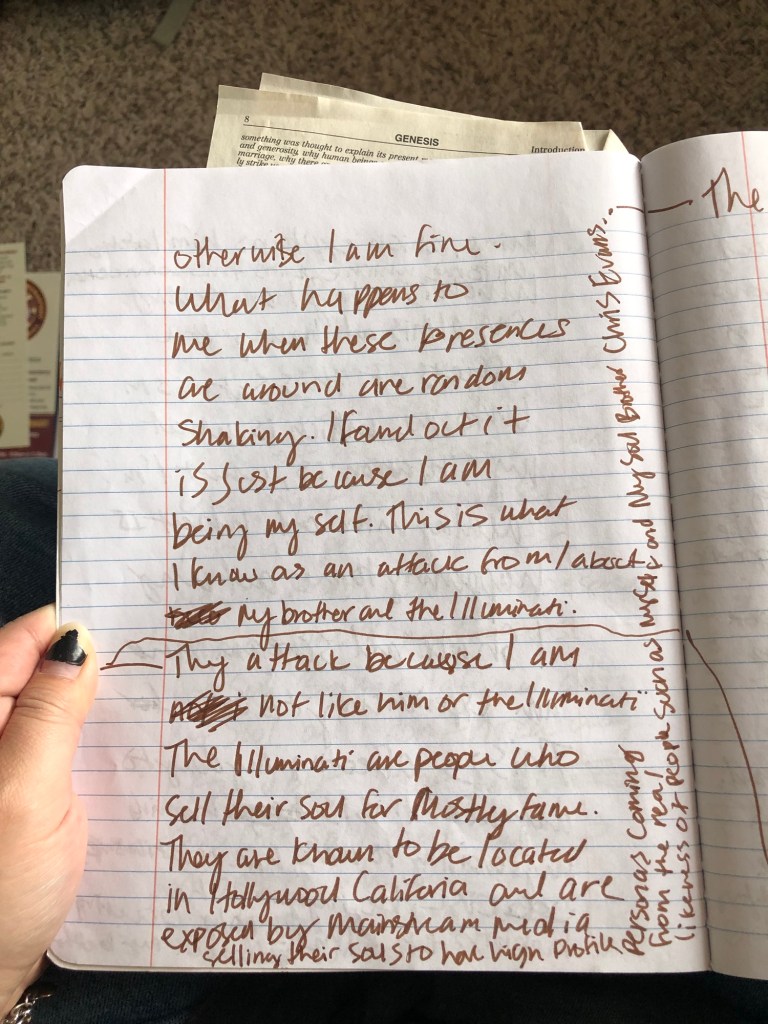 8
GENESIS
Introduction
something was thought to explain its present
and generosity, why human beings
marriage, why there
ly strike
otherwise I am fine.
What happens to
me when these presences
are around are random
Shaking. I found out it
is just because I am
being my self. This is what
I know as an attack from/about
my brother and the Illuminati.
They attack because I am
not like him or the Illuminati
The Illuminati are people who
sell their soul for Mostly Fame.
They are known to be located
in Hollywood California and are
exposed by Mainstream media
selling their souls to have high profile
personas coming
from the real
likeness of people such as myself and My Soul Brother Chris Evans...
The